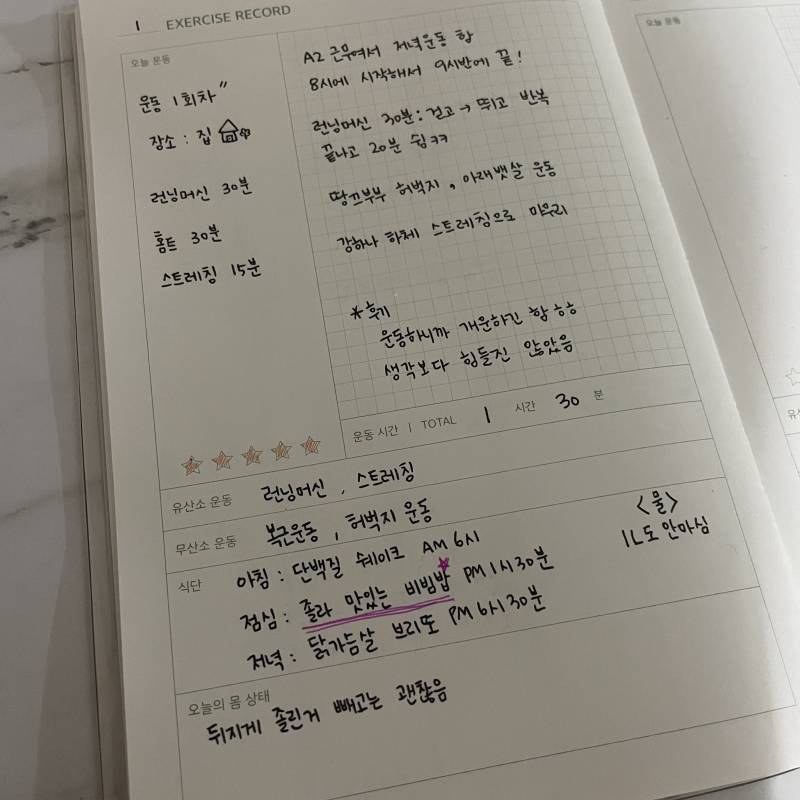 1 EXERCISE RECORD
오늘 운동
운동 1회차"
장소 : 집
런닝머신 30분
홈트 30분
스트레칭 15분
A2 근무여서 저녁운동 함
8시에 시작해서 9시반에 끝!
런닝머신 30분 : 걷고 → 뛰고 반복
끝나고 20분 쉼ㅋㅋ
땅끄부부 허벅지, 아래뱃살 운동
강하나 하체 스트레칭으로 마무리
*후기
운동하니까 개운하긴 함ㅎㅎ
생각보다 힘들진 않았음
운동 시간 | TOTAL 1 시간 30 분
유산소 운동 런닝머신, 스트레칭
무산소 운동 복근운동, 허벅지 운동
식단 아침 : 단백질 쉐이크 AM 6시
점심 : 졸라 맛있는 비빔밥 PM 1시30분
저녁 : 닭가슴살 브리또 PM 6시30분
<물>
1L도 안마심
오늘의 몸 상태
뒤지게 졸린거 빼고는 괜찮음
오늘 운동
유산